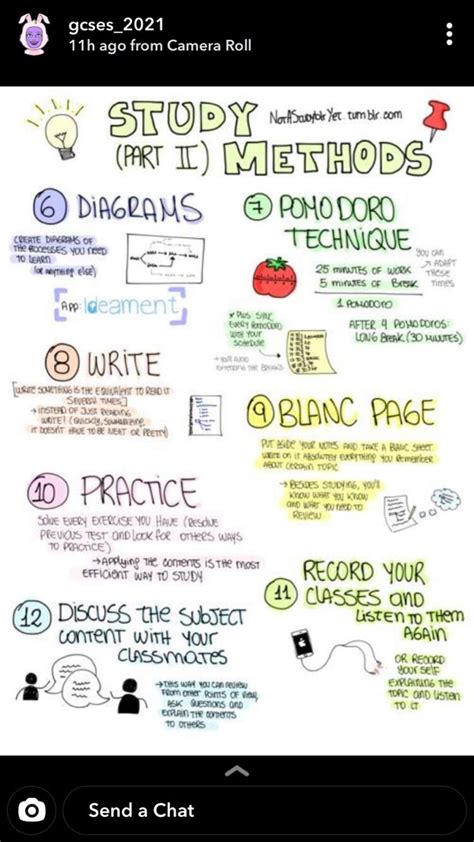 gcses_2021
11h ago from Camera Roll
STUDY
NotAStudyblrYet.tumblr.com
(PART II) METHODS
6 DIAGRAMS
CREATE DIAGRAMS OF
THE PROCESSES YOU NEED
TO LEARN
(OR ANYTHING ELSE)
APP: Ideament
7 POMODORO
TECHNIQUE
25 MINUTES OF WORK
5 MINUTES OF BREAK
YOU CAN
ADAPT
THESE
TIMES
1 POMODORO
AFTER 4 POMODOROS:
LONG BREAK (30 MINUTES)
EVERY POMODORO
WITH YOUR
SCHEDULE
8 WRITE
[WRITE SOMETHING IS THE EQUIVALENT TO READ IT
SEVERAL TIMES]
→ INSTEAD OF JUST READING
WRITE! (QUICKLY, SUMMARIZING,
IT DOESN'T HAVE TO BE NEAT OR PRETTY)
9 BLANC PAGE
PUT ASIDE YOUR NOTES AND TAKE A BLANC SHEET
WRITE ON IT ABSOLUTELY EVERYTHING YOU REMEMBER
ABOUT CERTAIN TOPIC
→ BESIDES STUDYING, YOU'LL
KNOW WHAT YOU KNOW
AND WHAT YOU NEED TO
REVIEW
10 PRACTICE
SOLVE EVERY EXERCISE YOU HAVE (RESOLVE
PREVIOUS TEST AND LOOK FOR OTHERS WAYS
TO PRACTICE)
→ APPLYING THE CONTENTS IS THE MOST
EFFICIENT WAY TO STUDY
11 RECORD YOUR
CLASSES AND
LISTEN TO THEM
AGAIN
OR RECORD
YOURSELF
EXPLAINING THE
TOPIC AND LISTEN
TO IT
12 DISCUSS THE SUBJECT
CONTENT WITH YOUR
CLASSMATES
→ THIS WAY YOU CAN REVIEW
FROM OTHER POINTS OF VIEW,
ASK QUESTIONS AND
EXPLAIN THE CONTENTS
TO OTHERS
Send a Chat